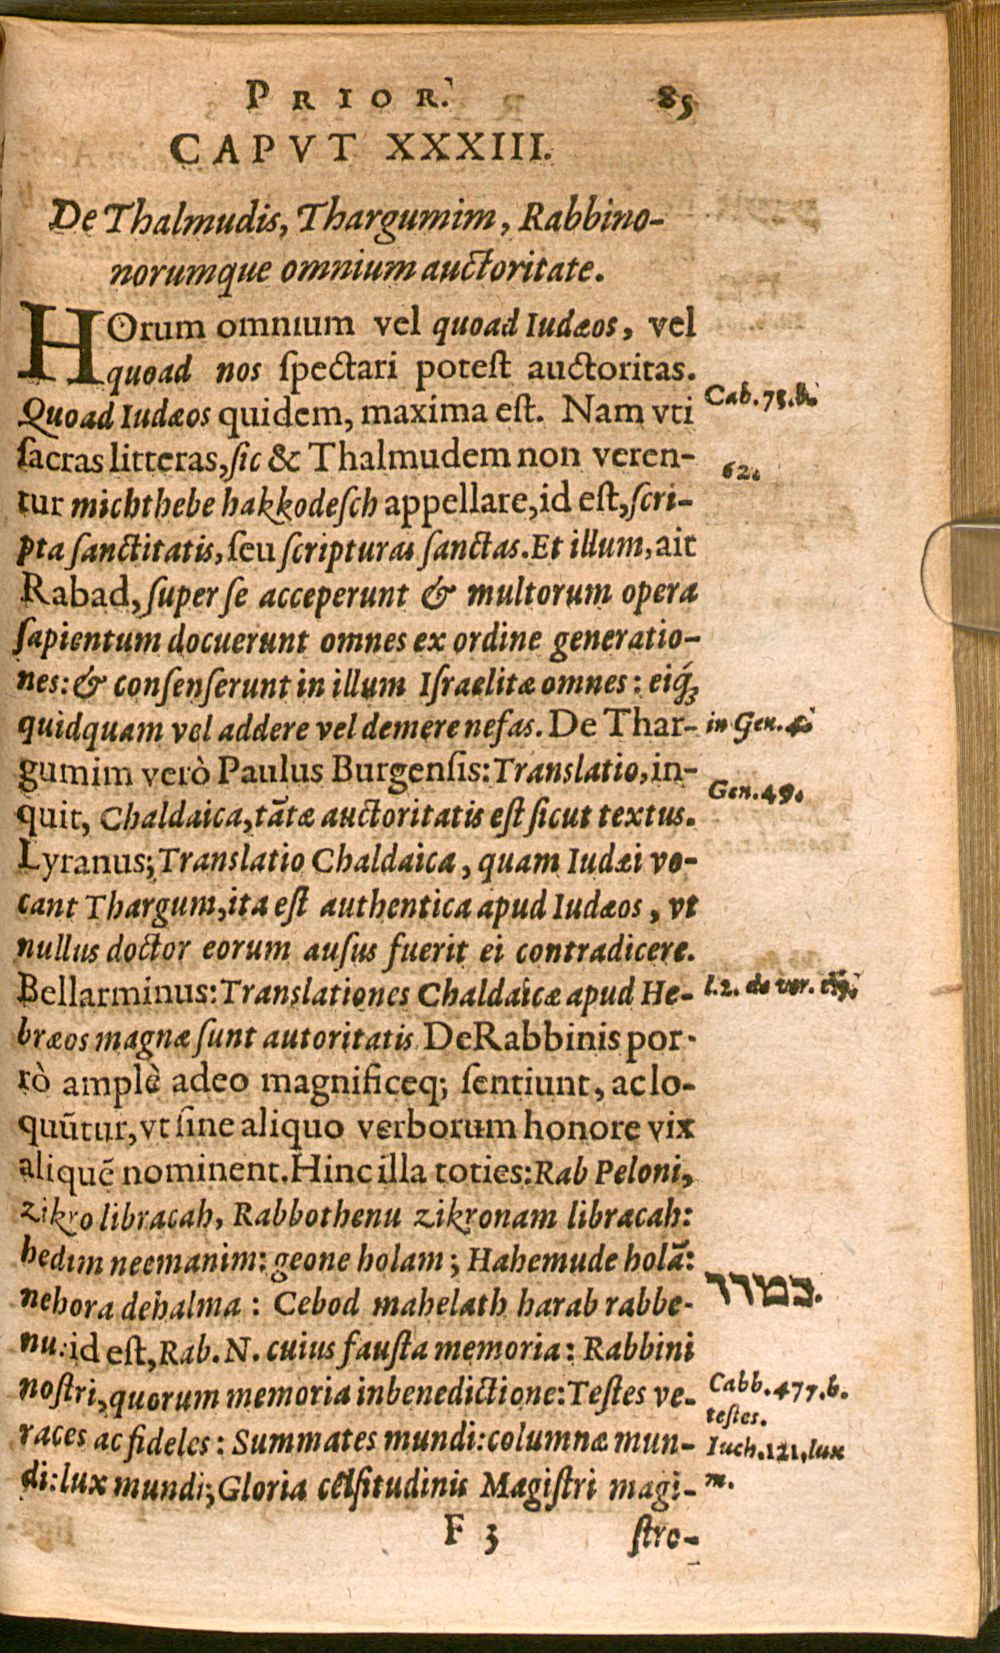 PRIOR. 85
CAPVT XXXIII.
De Thalmudis, Thargumim, Rabbino-
norumque omnium auctoritate.
HOrum omnium vel quoad Iudæos, vel
quoad nos ſpectari poteſt auctoritas.
Quoad Iudæos quidem, maxima eſt. Nam vti
Cab. 75. b.
ſacras litteras, ſic & Thalmudem non veren-
62.
tur michthebe hakkodeſch appellare, id eſt, ſcri-
pta ſanctitatis, ſeu ſcripturas ſanctas. Et illum, ait
Rabad, ſuper ſe acceperunt & multorum opera
ſapientum docuerunt omnes ex ordine generatio-
nes: & conſenſerunt in illum Iſraelitæ omnes: eiq́;
quidquam vel addere vel demere nefas. De Thar-
in Gen. 4.
gumim verò Paulus Burgenſis: Translatio, in-
Gen. 49.
quit, Chaldaica, tātæ auctoritatis eſt ſicut textus.
Lyranus; Translatio Chaldaica, quam Iudæi vo-
cant Thargum, ita eſt authentica apud Iudæos, vt
nullus doctor eorum auſus fuerit ei contradicere.
Bellarminus: Translationes Chaldaicæ apud He-
l. 2. de ver.
bræos magnæ ſunt autoritatis. De Rabbinis por-
rò amplè adeo magnificeq; ſentiunt, ac lo-
quūtur, vt ſine aliquo verborum honore vix
aliquē nominent. Hinc illa toties: Rab Peloni,
zikro libracah, Rabbothenu zikronam libracah:
hedim neemanim: geone holam; Hahemude holā:
nehora dehalma: Cebod mahelath harab rabbe-
במרר.
nu: id eſt, Rab. N. cuius fauſta memoria: Rabbini
noſtri, quorum memoria in benedictione: Teſtes ve-
Cabb. 477. b.
teſtes.
races ac fideles: Summates mundi: columnæ mun-
Iuch. 121. lux
di: lux mundi; Gloria celſitudinis Magiſtri magi-
m.
F 3 ſtro-